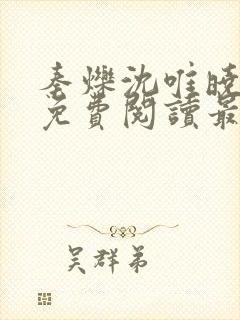 秦爍沈唯曉
免費閱讀最
吴群弟